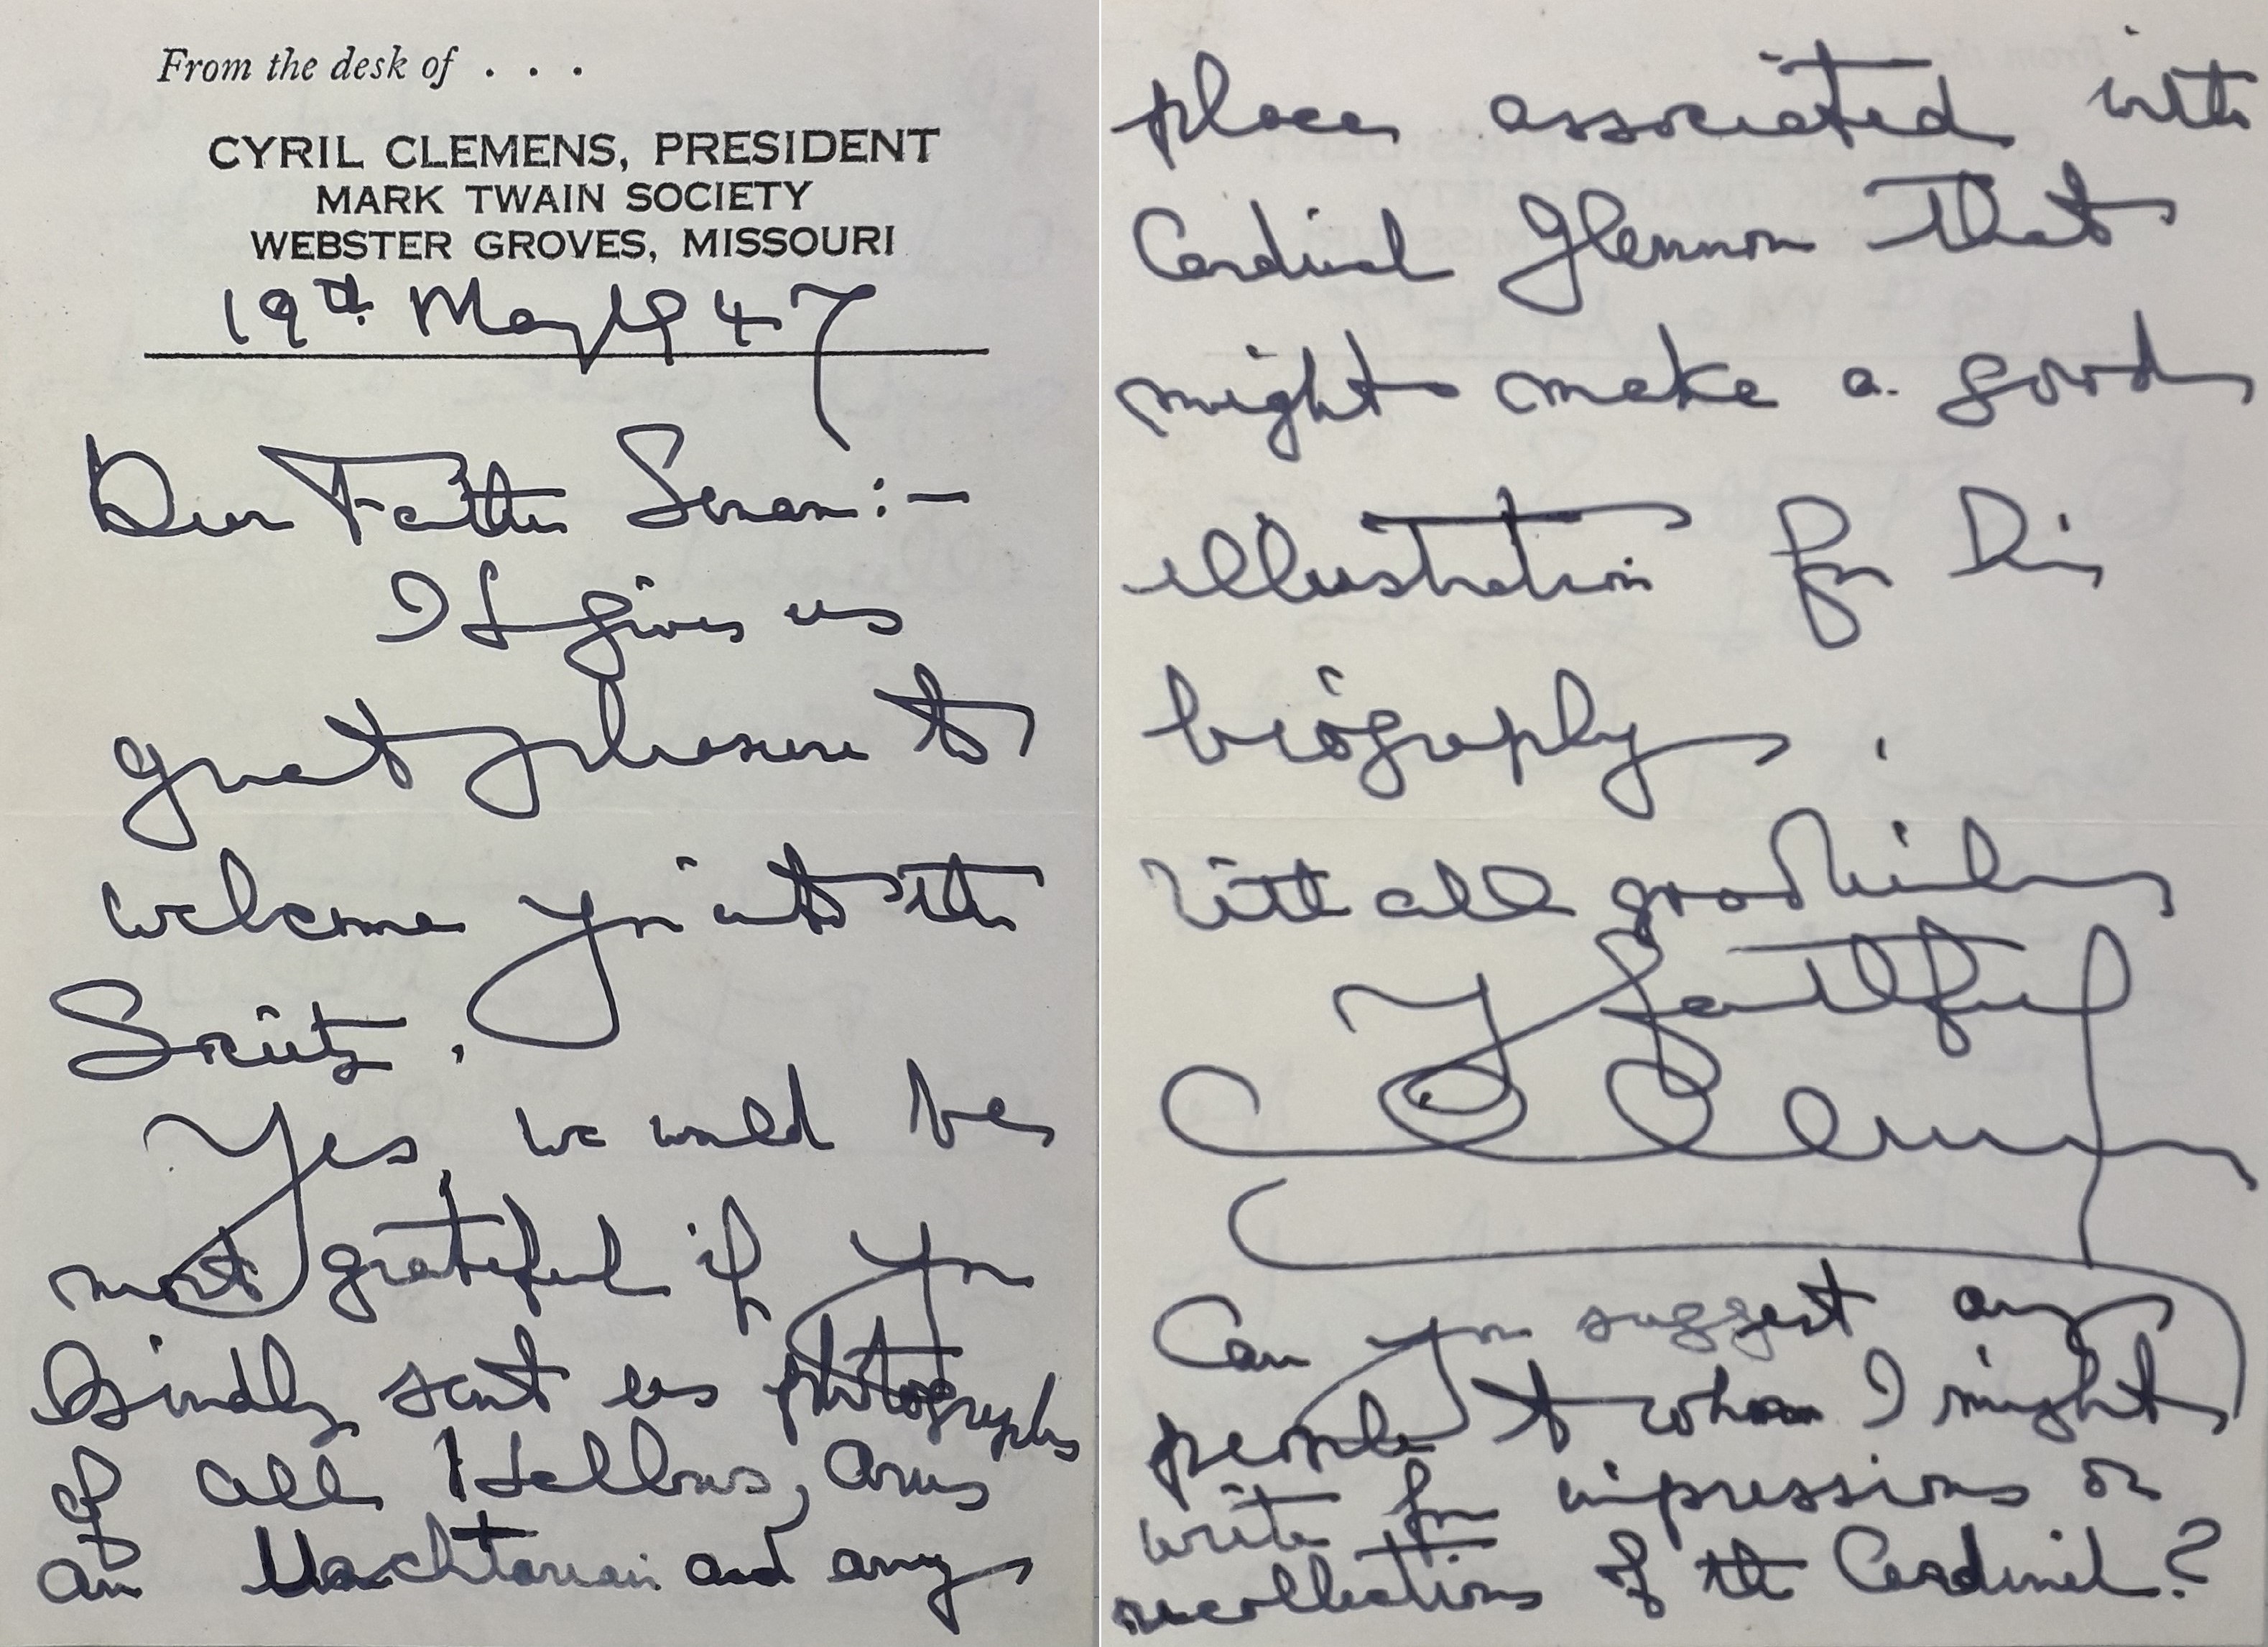 From the desk of . . .
CYRIL CLEMENS, PRESIDENT
MARK TWAIN SOCIETY
WEBSTER GROVES, MISSOURI
19th May 1947
Dear Father :—
It gives us
great pleasure to
welcome you into the
Society.
Yes, we would be
most grateful if you
kindly sent us photographs
of all
an and any
places associated with
Cardinal Glennon that
might make a good
illustration for his
biography.
With all good wishes
Y faithful
C Clemens
Can you suggest any
people to whom I might
write for impressions or
recollections of the Cardinal?